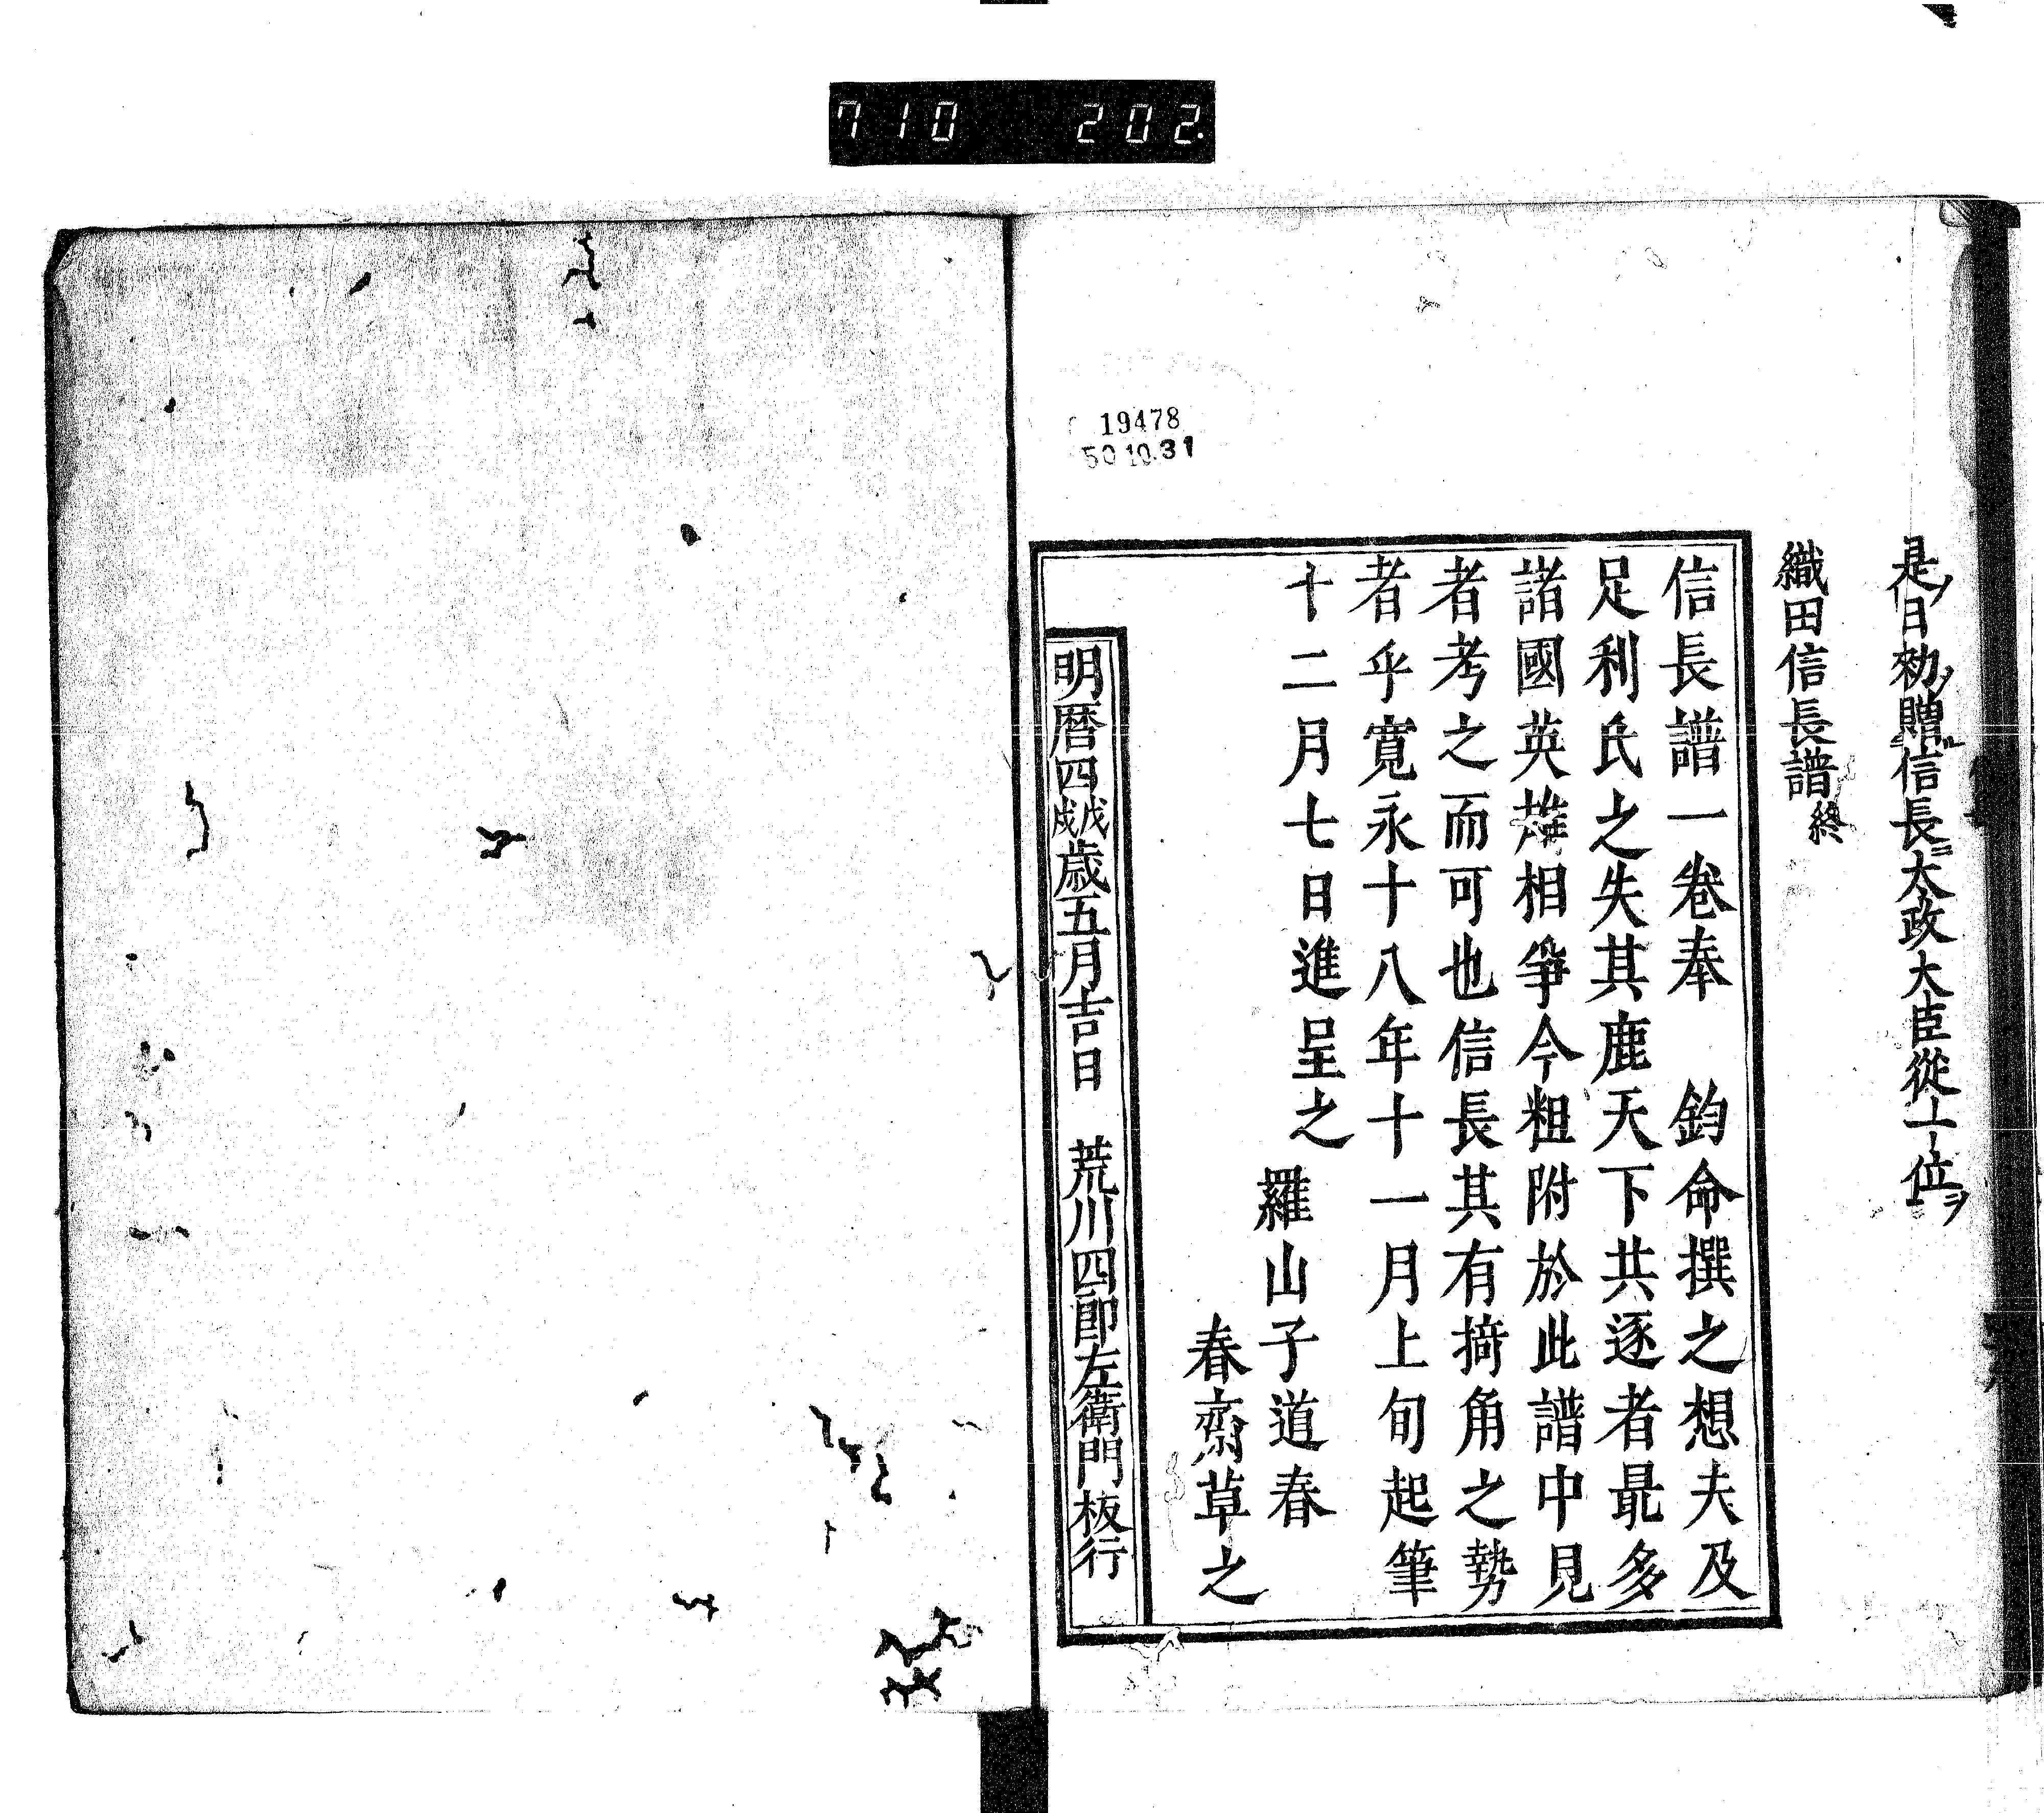 710 202.
19478
50.10.31
是ノ日勑ノ贈ル信長ニ太政大臣從一位ヲ
織田信長譜終
信長譜一卷奉　鈞命撰之想夫及
足利氏之失其鹿天下共逐者最多
諸國英雄相爭今粗附於此譜中見
者考之而可也信長其有掎角之勢
者乎寛永十八年十一月上旬起筆
十二月七日進呈之
羅山子道春
春齋草之
明暦四戊戌歳五月吉日　荒川四郎左衛門板行